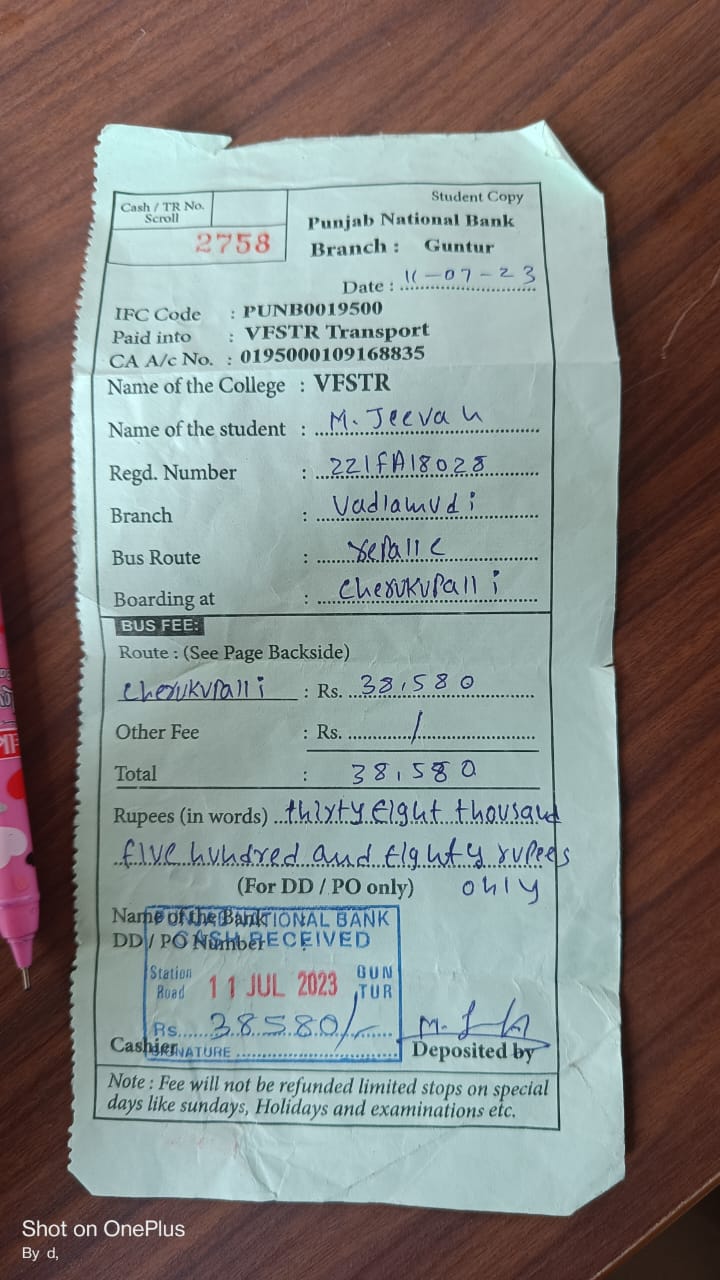 Student Copy
Cash / TR No.
Scroll
2758
Punjab National Bank
Branch : Guntur
Date : 11-07-23
IFC Code : PUNB0019500
Paid into : VFSTR Transport
CA A/c No. : 0195000109168835
Name of the College : VFSTR
Name of the student : M. Jeevan
Regd. Number : 221FA18028
Branch : Vadlamudi
Bus Route : repalle
Boarding at : Cherukupalli
BUS FEE:
Route : (See Page Backside)
Cherukupalli : Rs. 38,580
Other Fee : Rs. /
Total : 38,580
Rupees (in words) thirty Eight thousand
five hundred and Eighty rupees
only
(For DD / PO only)
Name of the Bank
DD / PO Number
NATIONAL BANK
CASH RECEIVED
Station Road 11 JUL 2023 GUNTUR
Rs. 38580/-
Cashier
SIGNATURE
Deposited by
Note : Fee will not be refunded limited stops on special
days like sundays, Holidays and examinations etc.
Shot on OnePlus
By d,